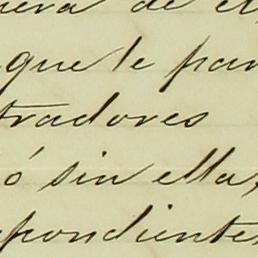 uera de el
que le par
tradores
ó sin ella,
spondiente